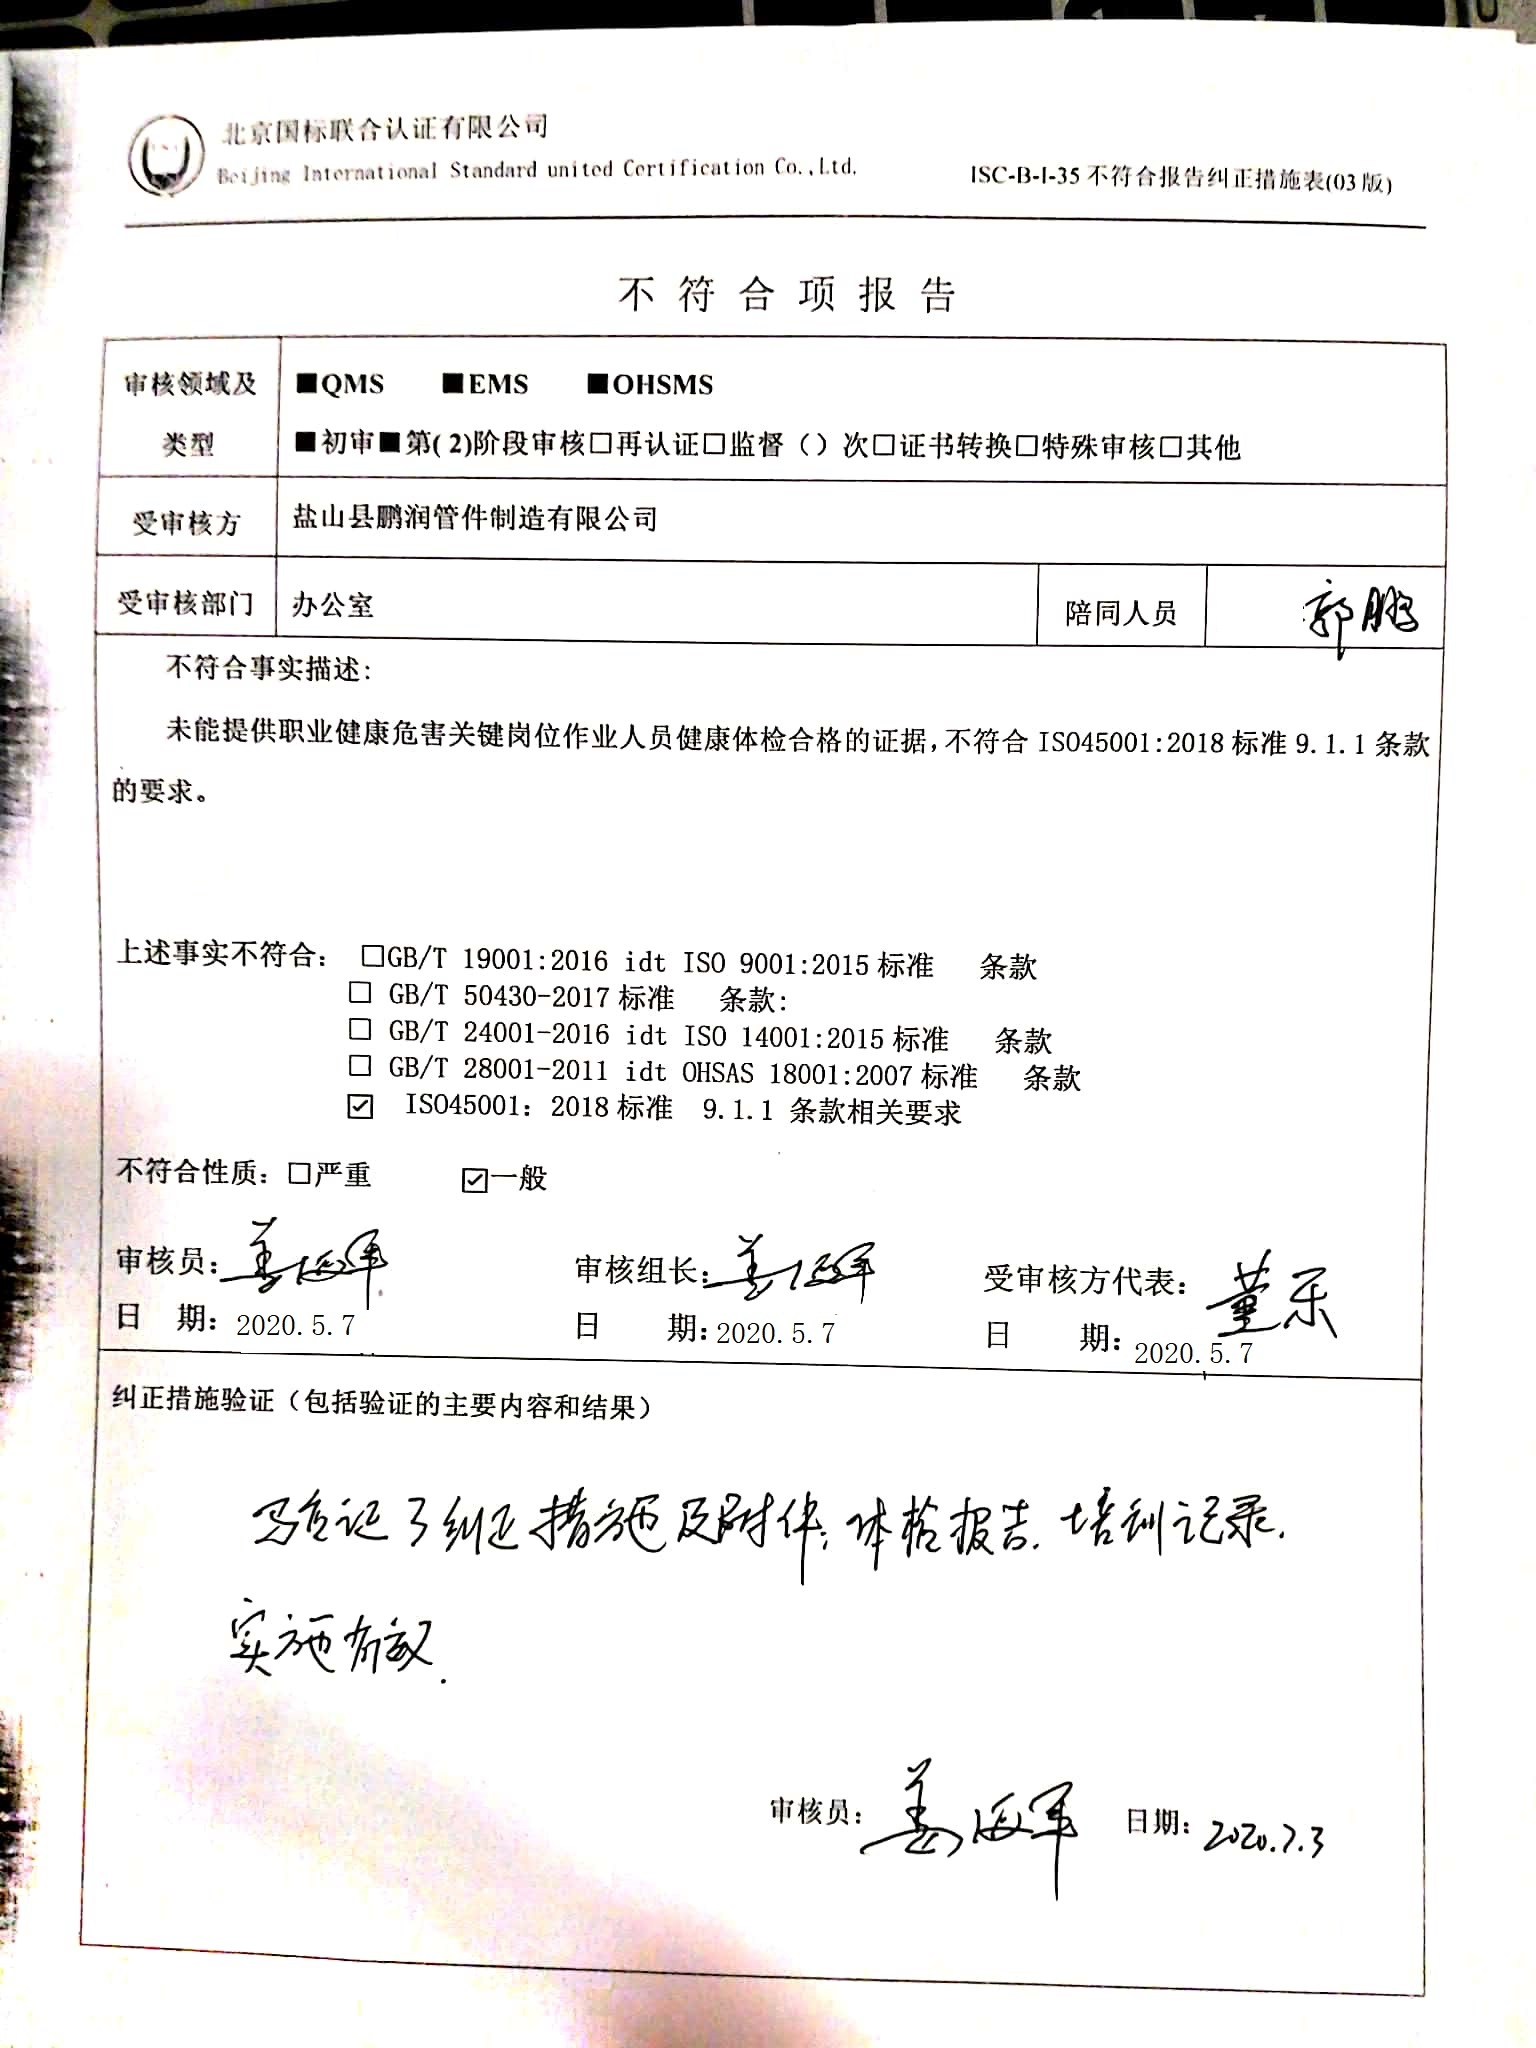 北京国标联合认证有限公司
Beijing International Standard united Certification Co.,Ltd.
ISC-B-I-35 不符合报告纠正措施表(03版)
不符合项报告
审核领域及类型
■QMS ■EMS ■OHSMS
■初审■第( 2)阶段审核□再认证□监督（）次□证书转换□特殊审核□其他
受审核方 盐山县鹏润管件制造有限公司
受审核部门 办公室 陪同人员 郭鹏
不符合事实描述:
未能提供职业健康危害关键岗位作业人员健康体检合格的证据,不符合 ISO45001:2018 标准 9.1.1 条款
的要求。
上述事实不符合: □GB/T 19001:2016 idt ISO 9001:2015 标准 条款
□ GB/T 50430-2017 标准 条款:
□ GB/T 24001-2016 idt ISO 14001:2015 标准 条款
□ GB/T 28001-2011 idt OHSAS 18001:2007 标准 条款
☑ ISO45001: 2018 标准 9.1.1 条款相关要求
不符合性质: □严重 ☑一般
审核员: 姜海军 审核组长: 姜海军 受审核方代表: 董乐
日 期: 2020.5.7 日 期: 2020.5.7 日 期: 2020.5.7
纠正措施验证（包括验证的主要内容和结果）
验证了纠正措施及附件: 体检报告. 培训记录.
实施有效.
审核员: 姜海军 日期: 2020.7.3